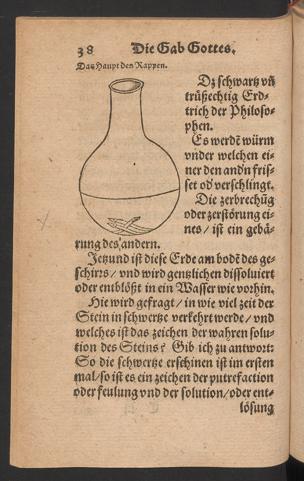 38 Die Gab Gottes.
Das Haupt des Rappen.
Dz schwartz vñ
trüßechtig Erd-
trich der Philoso-
phen.
Es werdẽ würm
vnder welchen ei-
ner den andn fris-
set od verschlingt.
Die zerbrechũg
oder zerstörung ei-
nes / ist ein gebä-
rung des andern.
Jetzund ist diese Erde am bodẽ des ge-
schirrs / vnd wird gentzlichen dissoluiert
oder entblößt in ein Wasser wie vorhin.
Hie wird gefragt / in wie viel zeit der
Stein in schwertze verkehrt werde / vnd
welches ist das zeichen der wahren solu-
tion des Steins? Gib ich zu antwort:
So die schwertze erscheinen ist im ersten
mal / so ist es ein zeichen der putrefaction
oder feulung vnd der solution / oder ent-
lösung